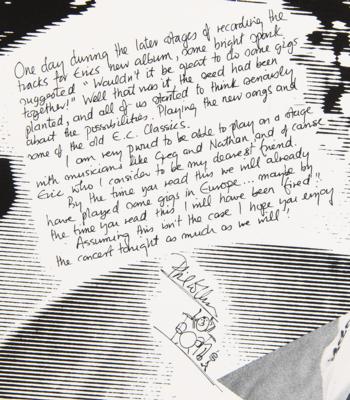 One day during the later stages of recording the
tracks for Erics new album, some bright spark
suggested "Wouldn't it be great to do some gigs
together!" Well that was it, the seed had been
planted, and all of us started to think seriously
about the possibilities. Playing the new songs and
some of the old E.C. Classics.
I am very proud to be able to play on a stage
with musicians like Greg and Nathan, and of course
Eric who I consider to be my dearest friend.
By the time you read this we will already
have played some gigs in Europe... maybe by
the time you read this, I will have been fired!!
Assuming this isn't the case, I hope you enjoy
the concert tonight as much as we will!